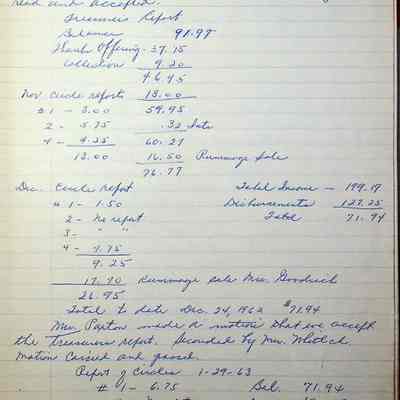 read and accepted.
Treasurers Report
Balance 91.97
Thank Offering 37.15
Collection 9.20
46.45
Nov. Circle reports 13.00
#1 - 3.00 59.45
2 - 5.75 .32 Int
4 - 4.25 60.27
13.00 16.50 Rummage Sale
76.77
Dec. Circle report Total Income - 199.19
#1 - 1.50 Disbursements 127.25
2 - No report Total 71.94
3 - " "
4 - 7.75
9.25
17.70 Rummage sale Mrs. Goodrich
26.95
Total to date Dec. 24, 1962 $71.94
Mrs. Paxton made a motion that we accept
the Treasurers report. Seconded by Mrs.
Motion carried and passed.
Report of Circles 1-29-63
#1 - 6.75 Bal. 71.94